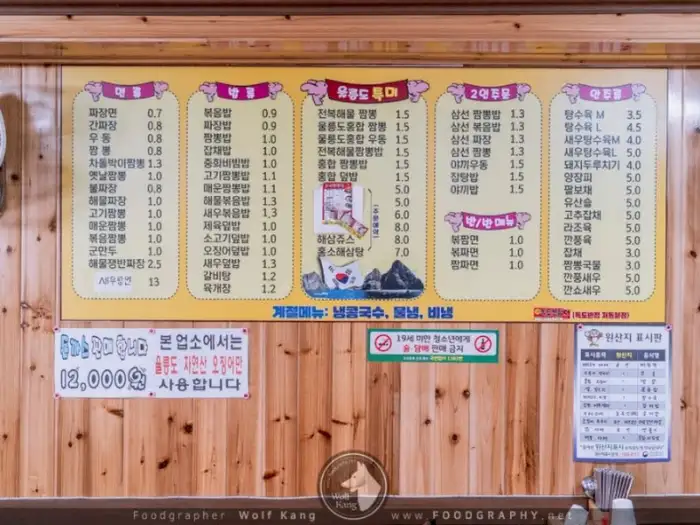 면 류
짜장면 0.7
간짜장 0.8
우 동 0.8
짬 뽕 0.8
차돌박이짬뽕 1.3
옛날짬뽕 1.0
불짜장 0.8
해물짜장 1.0
고기짬뽕 1.0
매운짬뽕 1.0
볶음짬뽕 1.0
군만두 1.0
해물쟁반짜장 2.5
새우탕면 13
밥 류
볶음밥 0.9
짜장밥 0.9
짬뽕밥 1.0
잡채밥 1.0
중화비빔밥 1.0
고기짬뽕밥 1.1
매운짬뽕밥 1.1
해물볶음밥 1.3
새우볶음밥 1.3
제육덮밥 1.0
소고기덮밥 1.0
오징어덮밥 1.0
새우덮밥 1.3
갈비탕 1.2
육개장 1.2
울릉도 특미
전복해물 짬뽕 1.5
울릉도홍합 짬뽕 1.5
울릉도홍합 우동 1.5
전복해물짬뽕밥 1.5
홍합 짬뽕밥 1.5
홍합 덮밥 1.5
5.0
5.0
6.0
8.0
해삼쥬스 8.0
홍소해삼탕 7.0
2인주문
삼선 짬뽕밥 1.3
삼선 볶음밥 1.3
삼선 짜장 1.3
삼선 짬뽕 1.3
야끼우동 1.5
잡탕밥 1.5
야끼밥 1.5
반/반 메뉴
볶짬면 1.0
볶짜면 1.0
짬짜면 1.0
안주류
탕수육 M 3.5
탕수육 L 4.5
새우탕수육M 4.0
새우탕수육L 5.0
돼지두루치기 4.0
양장피 5.0
팔보채 5.0
유산슬 5.0
고추잡채 5.0
라조육 5.0
깐풍육 5.0
잡채 3.0
짬뽕국물 3.0
깐풍새우 5.0
깐쇼새우 5.0
계절메뉴: 냉콩국수, 물냉, 비냉
(독도반점 저동본점)
돈까스 판매 합니다
12,000원
본 업소에서는
울릉도 자연산 오징어만
사용합니다
19세 미만 청소년에게
술·담배 판매 금지
원산지 표시판
Foodgrapher Wolf Kang
Wolf Kang
www.FOODGRAPHY.net